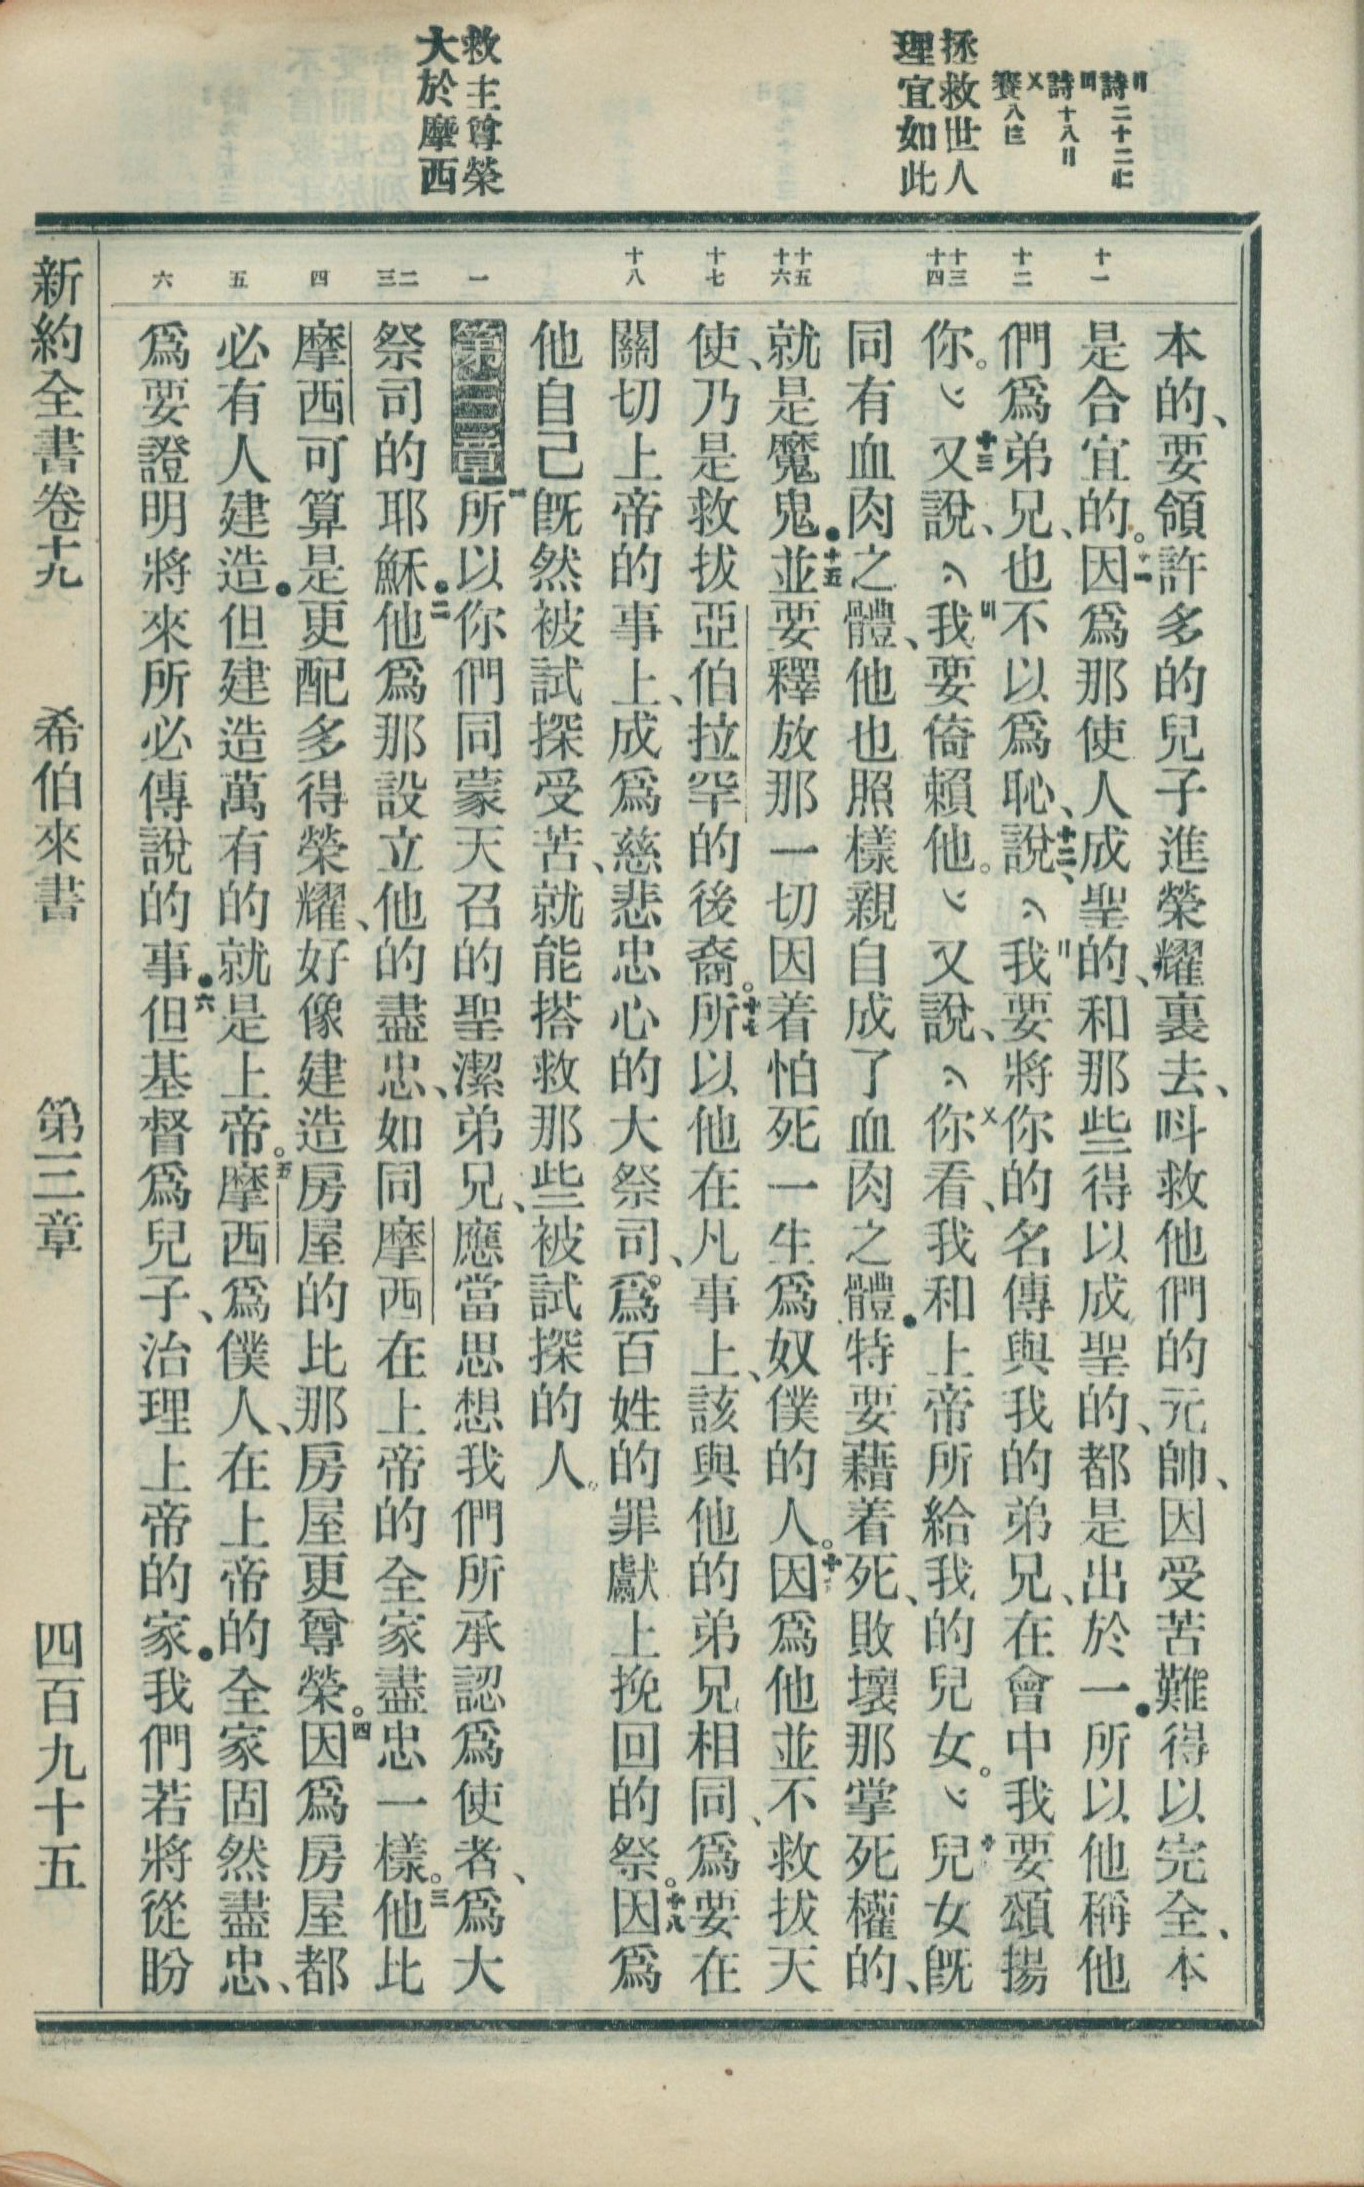 〢詩二十二〧
〣詩十八〢
〤賽八〨
拯救世人
理宜如此
救主尊榮
大於摩西
十一
十二
十三
十四
十五
十六
十七
十八
一
二
三
四
五
六
本的、要領許多的兒子進榮耀裏去、呌救他們的元帥、因受苦難得以完全、本
是合宜的。十一因爲那使人成聖的、和那些得以成聖的、都是出於一●所以他稱他
們爲弟兄、也不以爲恥、十二說、〢我要將你的名傳與我的弟兄、在會中我要頌揚
你。十三又說、〣我要倚賴他。又說、〤你看、我和上帝所給我的兒女。兒女旣
同有血肉之體、他也照樣親自成了血肉之體●特要藉着死、敗壞那掌死權的、
就是魔鬼●十五並要釋放那一切因着怕死一生爲奴僕的人。因爲他並不救拔天
使、乃是救拔亞伯拉罕的後裔。十七所以他在凡事上、該與他的弟兄相同、爲要在
關切上帝的事上、成爲慈悲忠心的大祭司、爲百姓的罪獻上挽回的祭。十八因爲
他自己旣然被試探受苦、就能搭救那些被試探的人。
第三章一所以你們同蒙天召的聖潔弟兄、應當思想我們所承認爲使者、爲大
祭司的耶穌●二他爲那設立他的盡忠、如同摩西在上帝的全家盡忠一樣。三他比
摩西可算是更配多得榮耀、好像建造房屋的比那房屋更尊榮。四因爲房屋都
必有人建造●但建造萬有的就是上帝。五摩西爲僕人、在上帝的全家固然盡忠、
爲要證明將來所必傳說的事●六但基督爲兒子、治理上帝的家●我們若將從盼
新約全書卷十九 希伯來書 第三章 四百九十五